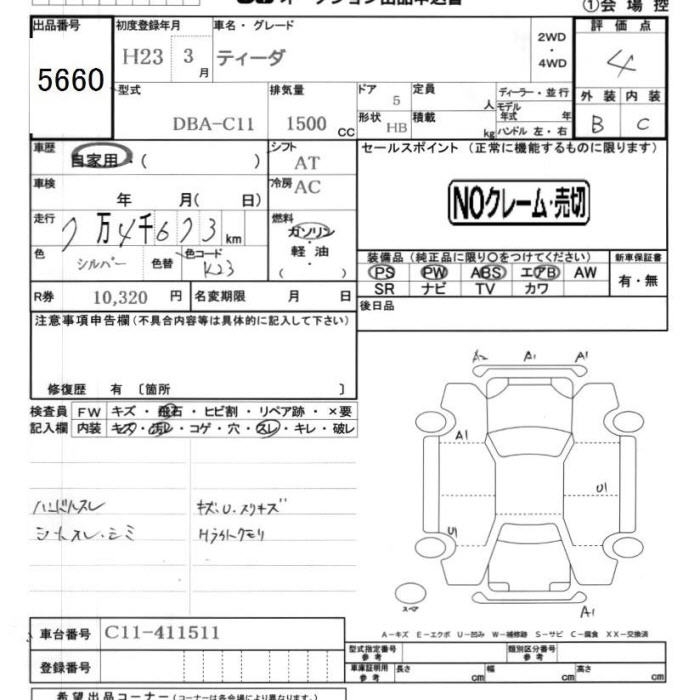 ①会場控
出品番号 初度登録年月 車名・グレード 2WD・4WD 評価点
5660 H23 3月 ティーダ 4
型式 排気量 ドア 定員 ディーラー・並行 外装 内装
DBA-C11 1500 CC 5 人 モデル年式 年 B C
形状 HB 積載 kg ハンドル 左・右
車歴 自家用・( ) シフト AT セールスポイント(正常に機能するものに限ります)
車検 年 月(日) 冷房 AC
NOクレーム・売切
走行 7万4千673km 燃料 ガソリン・軽油・( )
色 シルバー 色替 色コード K23
装備品(純正品に限り〇をつけてください) 新車保証書
PS PW ABS エアB AW 有・無
SR ナビ TV カワ
R券 10,320円 名変期限 月 日 後日品
注意事項申告欄(不具合内容等は具体的に記入して下さい)
修復歴 有〔箇所 〕
検査員記入欄 FW キズ・飛石・ヒビ割・リペア跡・×要
内装 キズ・汚レ・コゲ・穴・スレ・キレ・破レ
A2 A1 A1
A1
U1
U1
ハンドルスレ キズ、U、スリキズ
シートスレ・シミ Hライトクモリ
スペア
A1
A-キズ E-エクボ U-凹み W-補修跡 S-サビ C-腐食 XX-交換済
車台番号 C11-411511
型式指定番号参考 類別区分番号参考
登録番号 車庫証明用参考 長さ cm 幅 cm 高さ cm
希望出品コーナー(コーナーは各会場により異なります。)